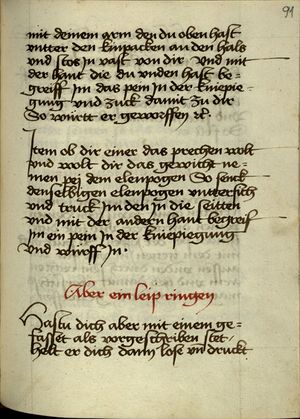 91
mit deinem arm den du oben hast
vntter den kinpacken an den hals
vnd stos in vast von dir Vnd mit
der hant die du vnden hast be-
greiff Im das pein In der kniepie-
gung vnd zuck damit zu dir
So wurtt er geworffen rc.
Item ob dir einer das prechen wolt
vnd wolt dir das gewicht ne-
men pei dem elenpogen So senck
denselbigen elenpogen vnttersich
vnd truck Im den In die seitten
vnd mit der andern hant begreif
Im ein pein In der kniepiegung
Vnd wurff In.
Aber ein leip ringen
Hastu dich aber mit einem ge-
fasset als vorgeschriben stet
helt er dich dann lose vn druckt